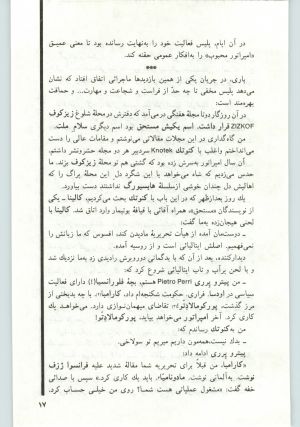 در آن ایام، پلیس فعالیت خود را به‌نهایت رسانده بود تا معنی عمیق
«امپراتور محبوب» را به‌افکار عمومی حقنه کند.
***
باری، در جریان یکی از همین بازدیدها ماجرائی اتفاق افتاد که نشان
می‌دهد پلیس مخفی تا چه حد از فراست و شجاعت و مهارت... و حماقت
بهره‌مند است:
در آن روزگار دوتا مجلهٔ هفتگی درمی‌آمد که دفترش در محلهٔ شلوغ زیژکوف
ZIZKOF قرار داشت. اسم یکیش مستحق بود اسم دیگری سلام ملت.
من گاه‌گداری در این مجلات مقالاتی می‌نوشتم و مقامات عالی را دست
می‌انداختم واغلب با کنوتك Knotek سردبیر هر دو مجله حشرونشر داشتم.
آن سال امپراتور به‌سرش زده بود که گشتی هم تو محلهٔ زیژکوف بزند. ما
حدس می‌زدیم که شاه می‌خواهد با این شگرد دل این محلهٔ پراگ را که
اهالیش دل چندان خوشی ازسلسلهٔ هابسبورگ نداشتند دست بیاورد.
یك روز بعدازظهر که در این باب با کنوتك بحث می‌کردیم، کالینا ـ یکی
از نویسندگان «مستحق»، همراه آقائی با قیافهٔ یوتیمار وارد اتاق شد. کالینا با
لحنی هیجان‌زده به‌ما گفت:
ـ دوست‌مان آمده از هیأت تحریریهٔ مادیدن کند، افسوس که ما زبانش را
نمی‌فهمیم. اصلش ایتالیائی است و از روسیه آمده.
دیدارکننده، بعد از آن که با بدگمانی دوروبرش را دیدی زد به‌ما نزدیك شد
و با لحن پرآب و تاب ایتالیائی شروع کرد که:
ـ من پیترو پرری Pietro Perri هستم، بچهٔ فلورانسیا(!) دارای فعالیت
سیاسی در اودسا. فراری. حکومت شکنجه‌ام داد، کارامیا!، با چه بدبختی از
مرز گذشت، پورکومالادِتّو!، تقاضای میهمان‌نوازی دارد. می‌خواهد یك
کاری کرد. آخر امپراتور می‌خواهد بیاید، پورکومالادِتّو!
من به‌کنوتك رساندم که:
ـ بدك نیست، همه‌مون داریم میریم تو سولاخی.
پیترو پرری ادامه داد:
ـ «کارامیا»، من قبلاً برای تحریریه شما مقالهٔ شدید علیه فرانسوا ژزف
نوشت. به‌آلمانی نوشت. مادونامیا!، باید یك کاری کرد.» سپس با صدائی
خفه گفت: «مشغول عملیاتی هست شما؟ روی من خیلی حساب کرد.
۱۷